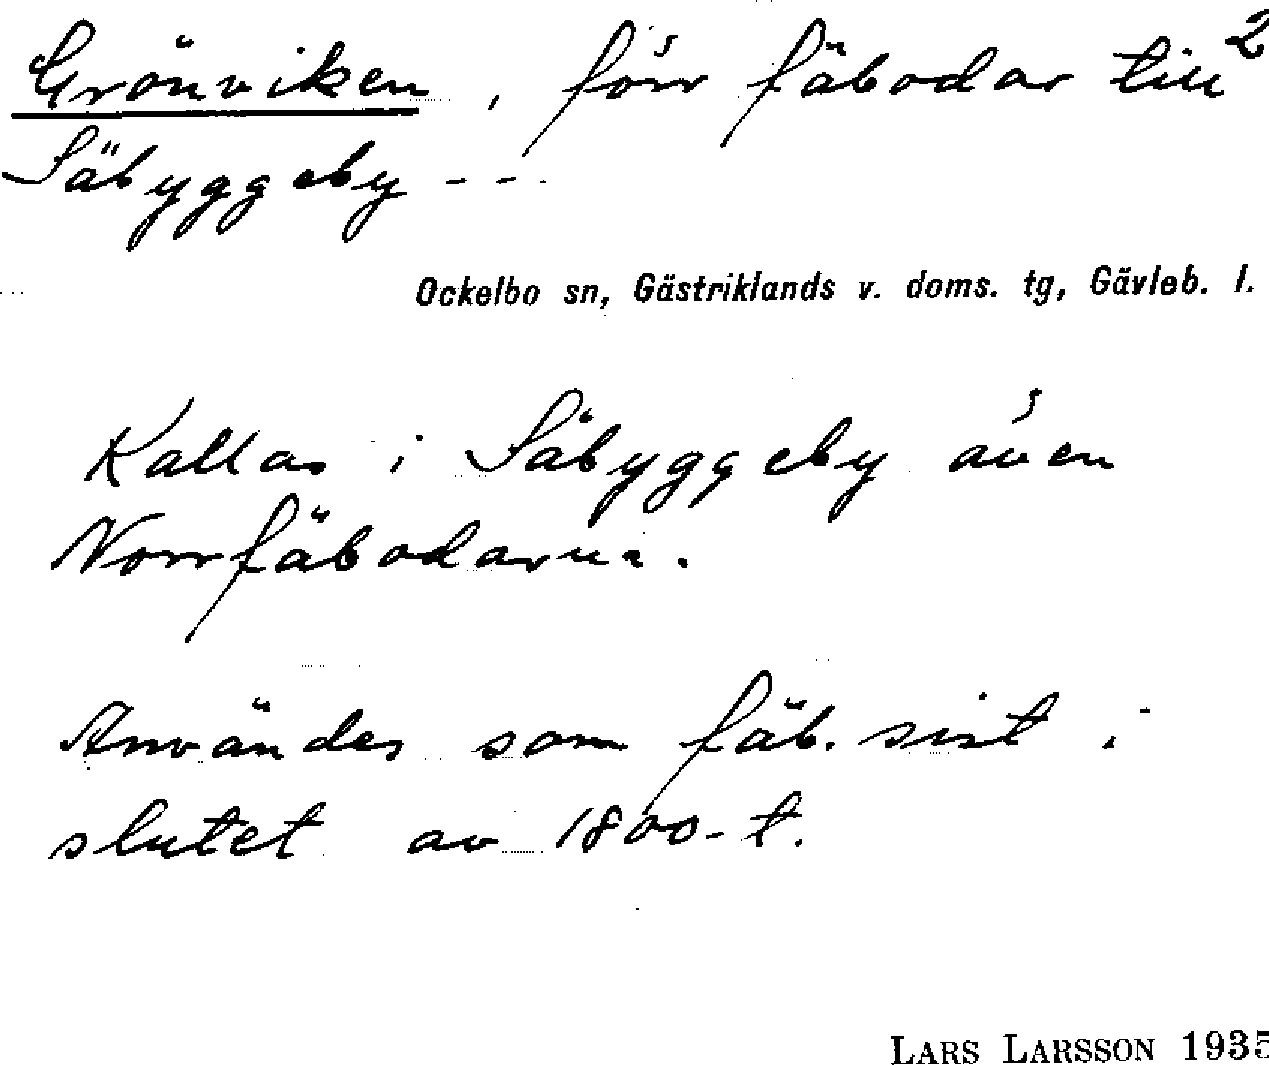 Grönviken, förr fäbodar till 2
Säbyggeby - - -
Ockelbo sn, Gästriklands v. doms. tg, Gävleb. l.
Kallas i Säbyggeby även
Norrfäbodarna.
Användes som fäb. sist i
slutet av 1800-t.
LARS LARSSON 1935